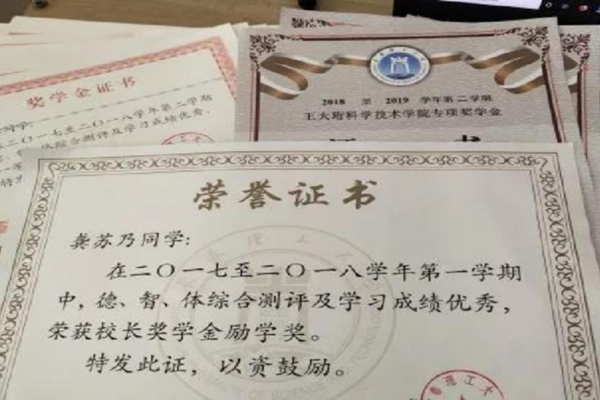 奖学金证书
同学:
二〇一七至二〇一八学年第二学期
体综合测评及学习成绩优秀,
2018 至 2019 学年第二学期
王大珩科学技术学院专项奖学金
证 书
荣誉证书
龚苏乃同学:
在二〇一七至二〇一八学年第一学期
中,德、智、体综合测评及学习成绩优秀,
荣获校长奖学金励学奖。
特发此证,以资鼓励。